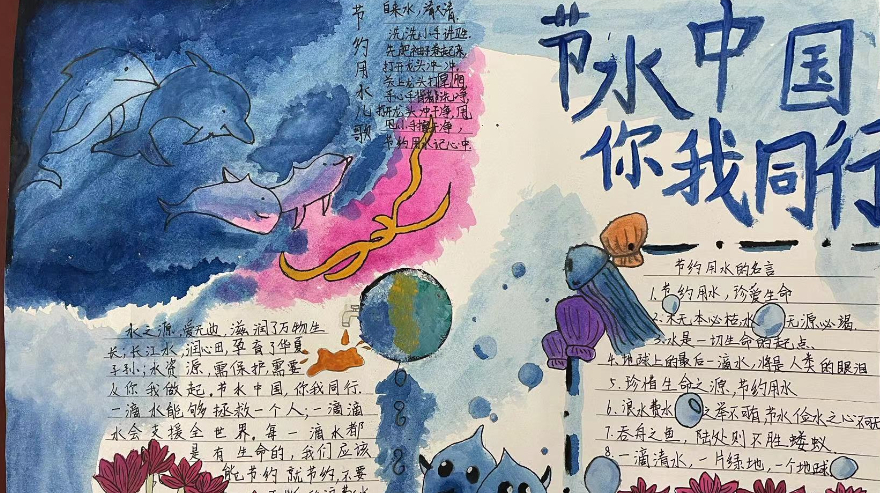 节约用水儿歌
自来水,清又清,
洗洗小手讲卫生
先把袖子卷起来,
打开龙头冲一冲,
关上龙头打肥皂
手心手背都洗净
打开龙头冲干净,用
毛巾小手擦干净,
节约用水记心中.
节水中国
你我同行
水之源,爱无边,滋润了万物生
长;长江水,润心田,孕育了华夏
子孙;水资源,需保护,需要
你我做起.节水中国,你我同行.
一滴水能够拯救一个人;一滴滴
水会支援全世界.每一滴水都
是有生命的,我们应该
能节约就节约,不要
节约用水的名言
1.节约用水,珍爱生命
2.木无本必枯,水无源必竭.
3.水是一切生命的起点.
4.地球上的最后一滴水,将是人类的眼泪
5.珍惜生命之源,节约用水
6.浪水费水之举不可有,节水俭水之心不可无
7.吞舟之鱼,陆处则不胜蝼蚁.
8.一滴清水,一片绿地,一个地球